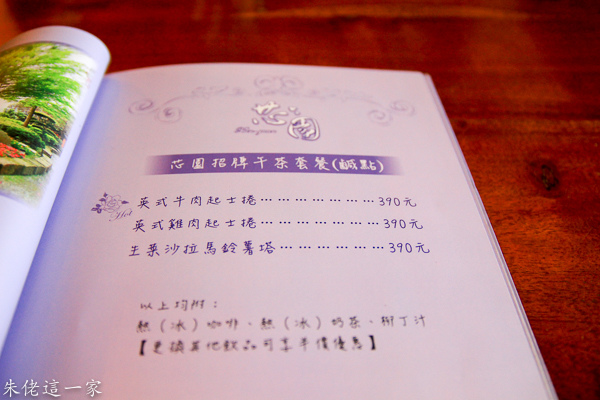 芯園
芯園招牌午茶套餐(鹹點)
Hot 英式牛肉起士捲………………390元
英式雞肉起士捲………………390元
生菜沙拉馬鈴薯塔………………390元
以上均附：
熱(冰)咖啡、熱(冰)奶茶、柳丁汁
【更換其他飲品可享半價優惠】
朱佬這一家